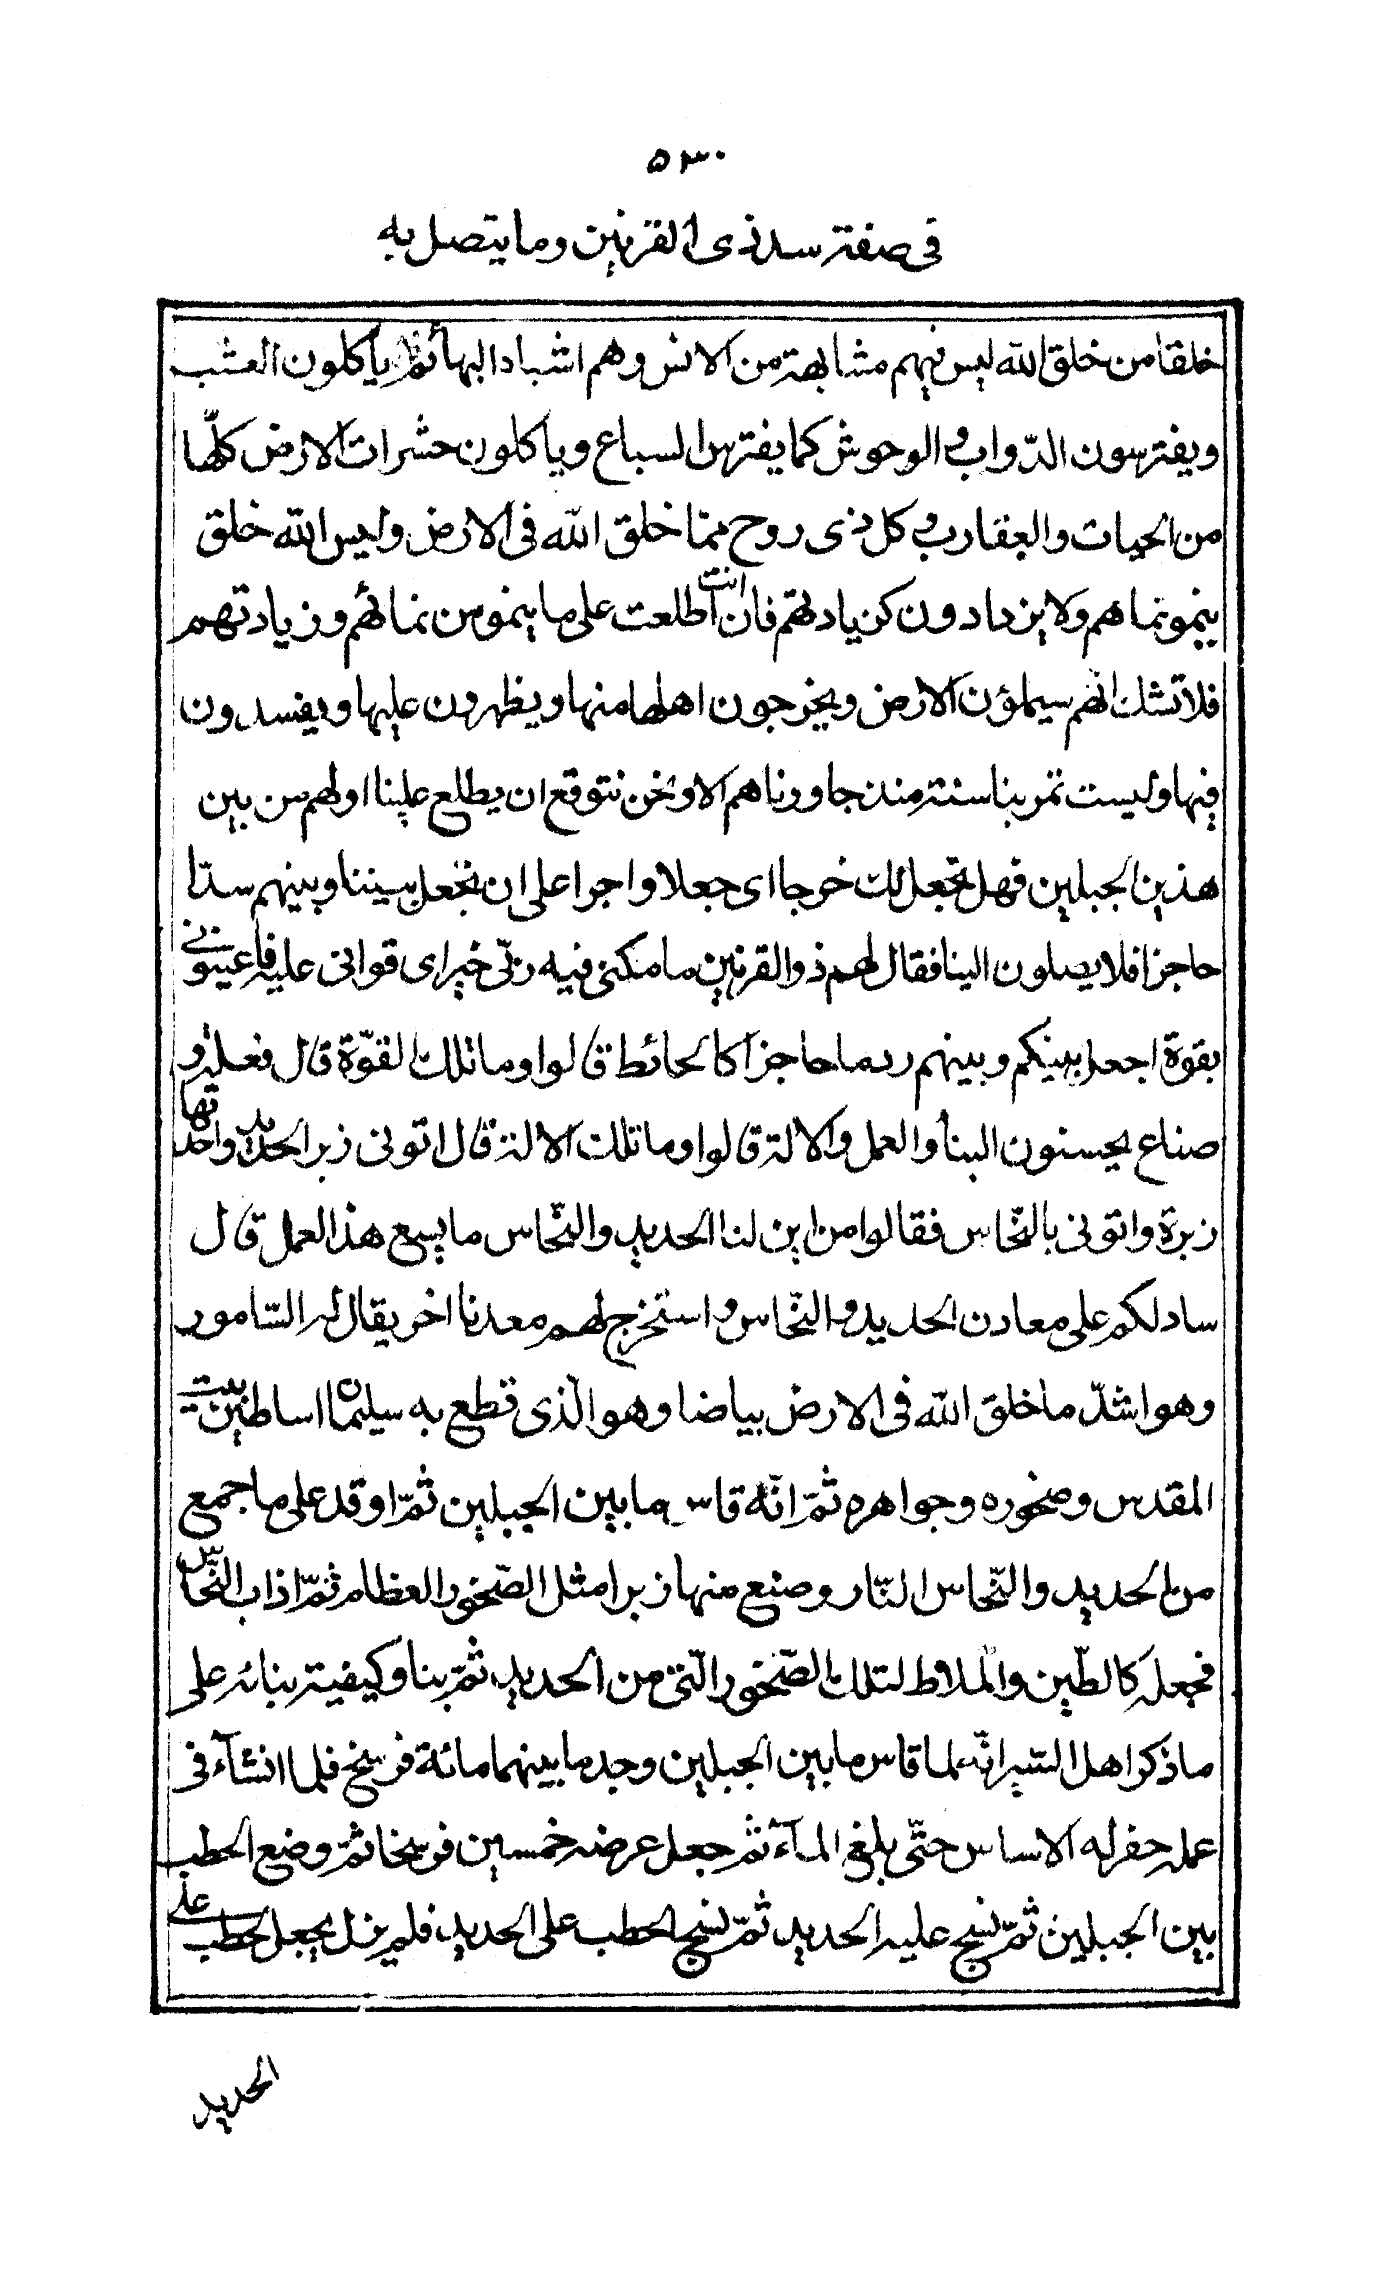 ۵۳۰
فى صفة سد ذى القرنين وما يتصل به
خلقا من خلق الله ليس فيهم مشابهة من الانس وهم اشباه البهائم يأكلون العشب
ويفترسون الدّواب والوحوش كما يفترس السباع ويأكلون حشرات الارض كلّها
من الحيات والعقارب وكل ذى روح ممّا خلق الله فى الارض وليس الله خلق
ينمو نماهم ولا يزدادون كزيادتهم فان انت اطلعت على ما ينمو من نمائهم وزيادتهم
فلا تشك انّهم سيملؤن الارض ويخرجون اهلها منها ويظهرون عليها ويفسدون
فيها وليست تمر بنا سنة منذ جاورناهم الا ونحن نتوقع ان يطلع علينا اولهم من بين
هذين الجبلين فهل نجعل لك خرجا اى جعلا واجرا على ان تجعل بيننا وبينهم سدّا
حاجزا فلا يصلون الينا فقال لهم ذوالقرنين ما مكنى فيه ربّى خير اى قوانى عليه فاعينونى
بقوة اجعل بينكم وبينهم ردما حاجزا كالحائط قالوا وما تلك القوّة قال فعلة و
صناع يحسنون البنأ والعمل والالة قالوا وما تلك الالة قال اتونى زبر الحديد واحدتها
زبرة واتونى بالنّحاس فقالوا من اين لنا الحديد والنّحاس ما يسع هذا العمل قال
سادلكم على معادن الحديد والنّحاس واستخرج لهم معدنا اخر يقال له السّامور
وهو اشدّ ما خلق الله فى الارض بياضا وهو الّذى قطع به سليمان اساطين بيت
المقدس وصخوره وجواهره ثمّ انّه قاس ما بين الجبلين ثمّ اوقد على ما جمع
من الحديد والنّحاس النّار وصنع منها زبرا مثل الصّخور العظام ثمّ اذاب النّحاس
فجعله كالطّين والملاط لتلك الصّخور الّتى من الحديد ثمّ بنا وكيفية بنائه على
ما ذكر اهل السّير انّه لما قاس ما بين الجبلين وجد ما بينهما مائة فرسخ فلما انشآء فى
عمله حفر له الاساس حتّى بلغ المآء ثم جعل عرضه خمسين فرسخا ثمّ وضع الحطب
بين الجبلين ثمّ نسج عليه الحديد ثمّ نسج الحطب على الحديد فلم يزل يجعل الحطب على
الحديد